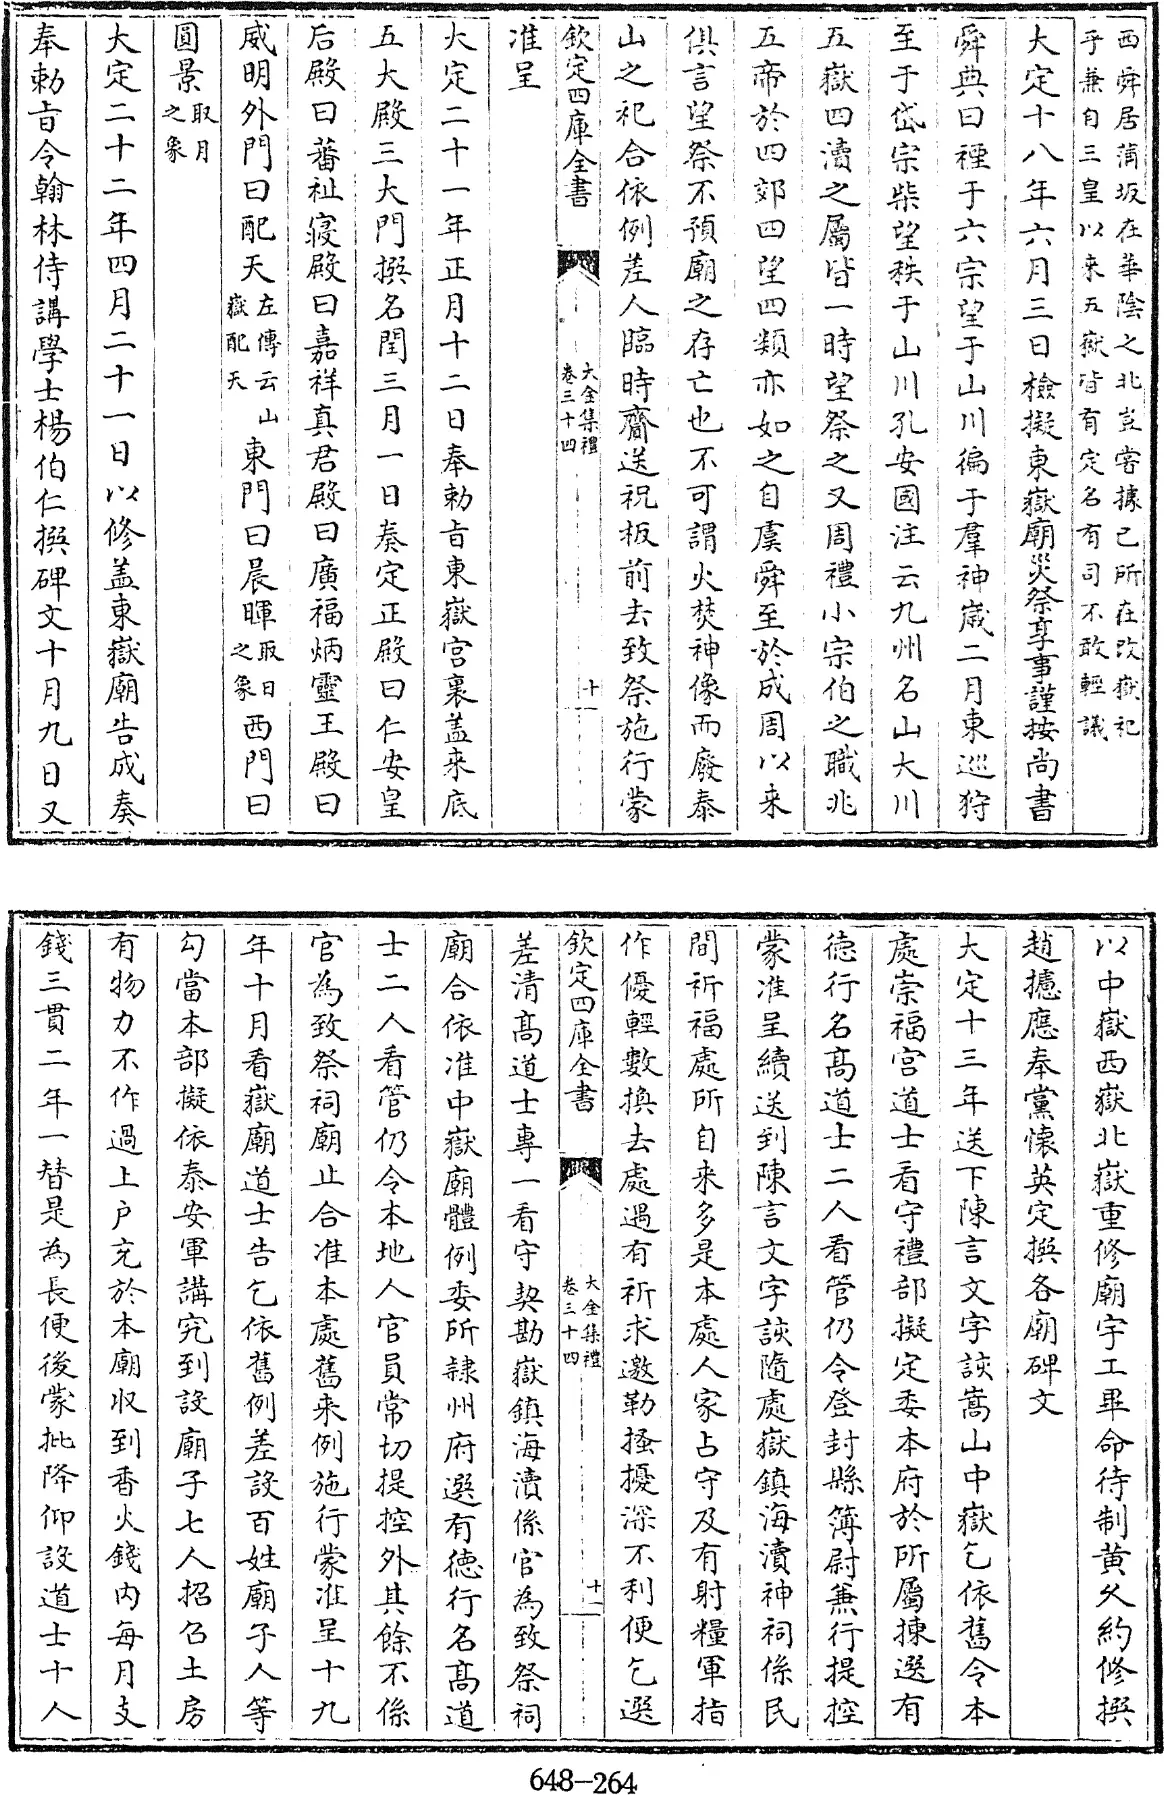 西舜居蒲坂在華陰之北豈嘗據己所在改嶽祀
乎兼自三皇以來五嶽皆有定名有司不敢輕議
大定十八年六月三日檢擬東嶽廟災祭享事謹按尚書
舜典曰禋于六宗望于山川徧于羣神歳二月東巡狩
至于岱宗柴望秩于山川孔安國注云九州名山大川
五嶽四瀆之屬皆一時望祭之又周禮小宗伯之職兆
五帝於四郊四望四類亦如之自虞舜至於成周以來
俱言望祭不預廟之存亡也不可謂火焚神像而廢泰
山之祀合依例差人臨時齎送祝板前去致祭施行蒙
欽定四庫全書
大金集禮
卷三十四
十一
准呈
大定二十一年正月十二日奉勅旨東嶽宮裏盖來底
五大殿三大門撰名閏三月一日奏定正殿曰仁安皇
后殿曰蕃祉寢殿曰嘉祥真君殿曰廣福炳靈王殿曰
威明外門曰配天左傳云山嶽配天東門曰晨暉取日之象西門曰
圓景取月之象
大定二十二年四月二十一日以修盖東嶽廟告成奏
奉勅旨令翰林侍講學士楊伯仁撰碑文十月九日又
以中嶽西嶽北嶽重修廟宇工畢命待制黄久約修撰
趙攄應奉黨懐英定撰各廟碑文
大定十三年送下陳言文字該嵩山中嶽乞依舊令本
處崇福宮道士看守禮部擬定委本府於所屬揀選有
徳行名髙道士二人看管仍令登封縣簿尉兼行提控
蒙准呈續送到陳言文字該隨處嶽鎮海瀆神祠係民
間祈福處所自来多是本處人家占守及有射糧軍指
作優輕數換去處遇有祈求邀勒搔擾深不利便乞選
欽定四庫全書
大金集禮
卷三十四
十二
差清髙道士專一看守契勘嶽鎮海瀆係官為致祭祠
廟合依准中嶽廟體例委所隷州府選有徳行名髙道
士二人看管仍令本地人官員常切提控外其餘不係
官為致祭祠廟止合准本處舊来例施行蒙准呈十九
年十月看嶽廟道士告乞依舊例差設百姓廟子人等
勾當本部擬依泰安軍講究到設廟子七人招召土房
有物力不作過上户充於本廟收到香火錢内每月支
錢三貫二年一替是為長便後蒙批降仰設道士十人
648-264